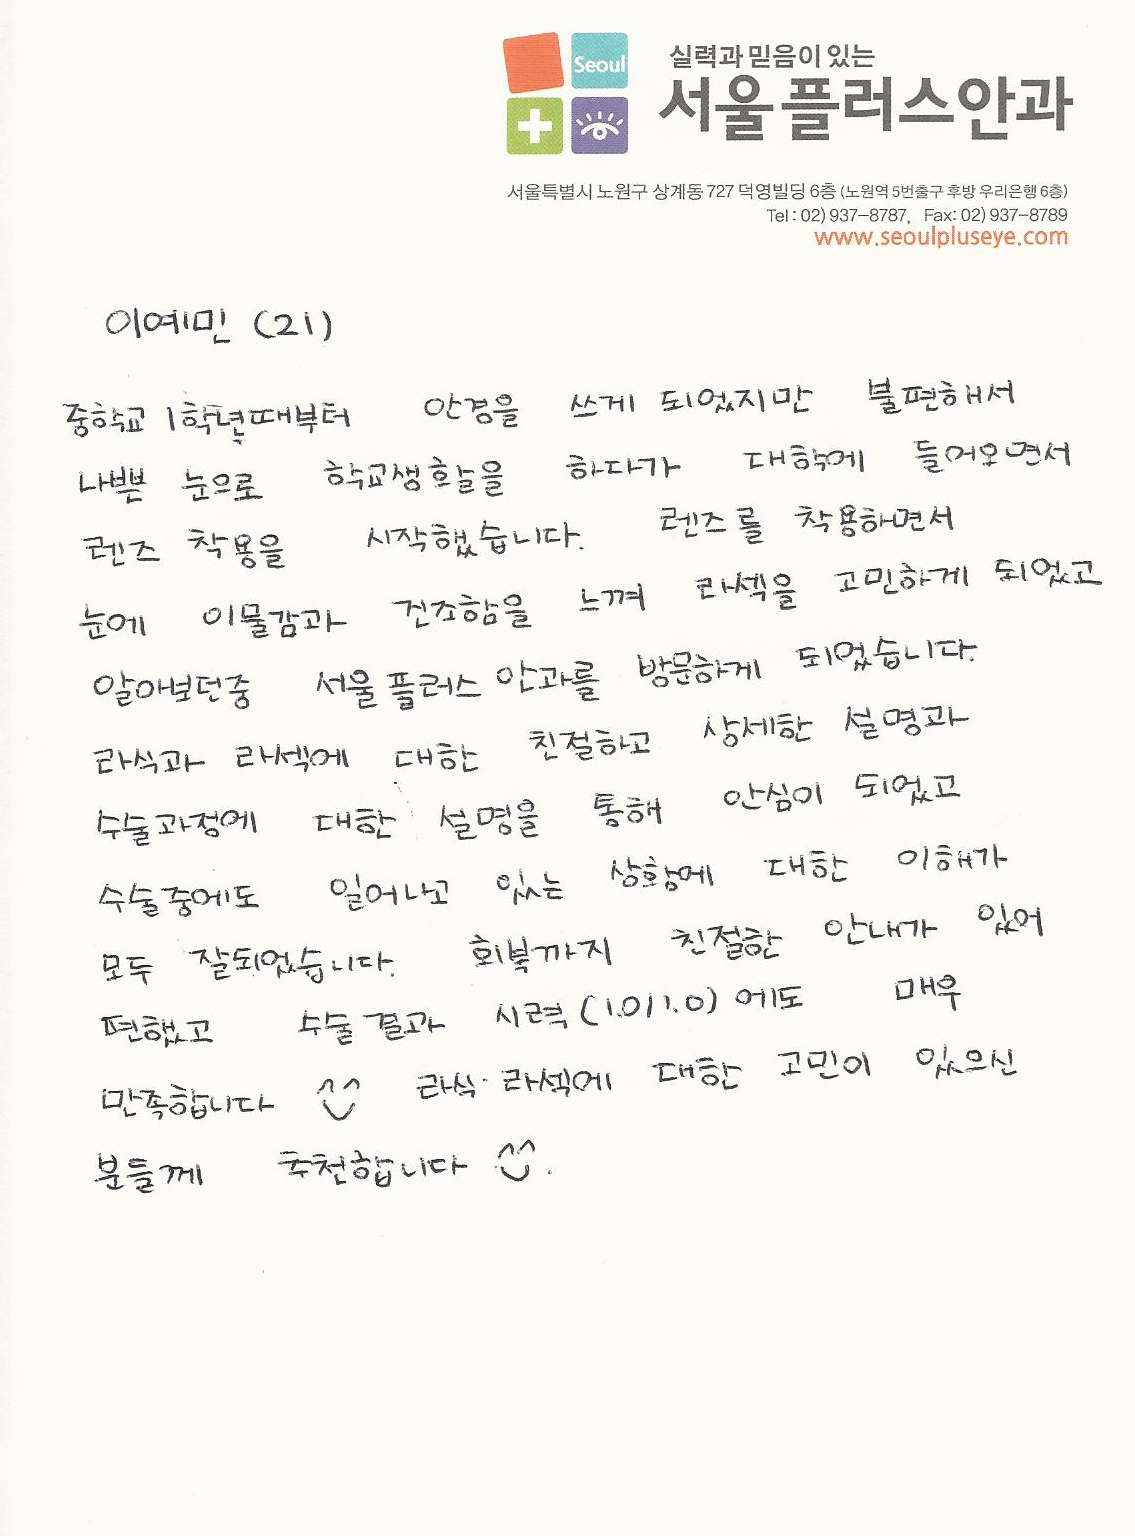 Seoul
실력과 믿음이 있는
서울플러스안과
서울특별시 노원구 상계동 727 덕영빌딩 6층 (노원역 5번출구 후방 우리은행 6층)
Tel : 02) 937-8787, Fax: 02) 937-8789
www.seoulpluseye.com
이예민 (21)
중학교 1학년때부터 안경을 쓰게 되었지만 불편해서
나쁜 눈으로 학교생활을 하다가 대학에 들어오면서
렌즈 착용을 시작했습니다. 렌즈를 착용하면서
눈에 이물감과 건조함을 느껴 라섹을 고민하게 되었고
알아보던중 서울플러스 안과를 방문하게 되었습니다.
라식과 라섹에 대한 친절하고 상세한 설명과
수술과정에 대한 설명을 통해 안심이 되었고
수술중에도 일어나고 있는 상황에 대한 이해가
모두 잘되었습니다. 회복까지 친절한 안내가 있어
편했고 수술결과 시력 (1.0/1.0) 에도 매우
만족합니다 ^^ 라식·라섹에 대한 고민이 있으신
분들께 추천합니다 ^^.